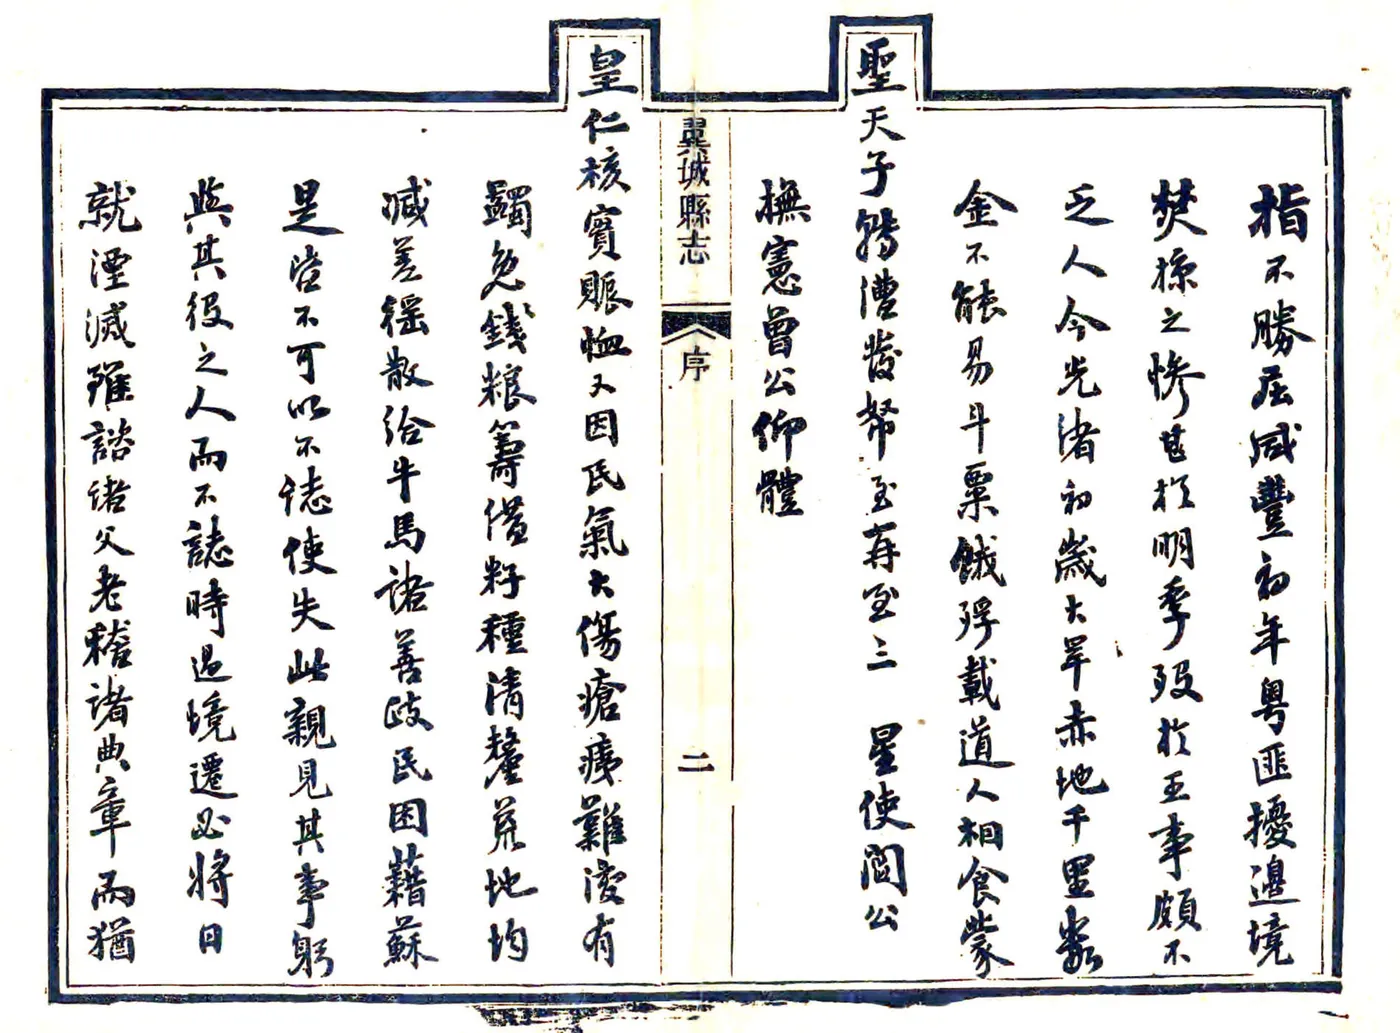 指不勝屈咸豐初年粵匪擾邊境
焚掠之慘甚於明季歿於王事頗不
乏人今光渚初歲大旱赤地千里數
金不能易斗粟餓殍載道人相食蒙
聖天子轉漕發帑至再至三 星使閻公
撫憲曾公仰體
翼城縣志
序
二
皇仁核實賑恤又因民氣大傷瘡痍難復有
蠲免錢粮籌借籽種清釐荒地均
減差徭散給牛馬諸善政民困藉蘇
是皆不可以不誌使失此親見其事躬
與其役之人而不誌時過境遷必將日
就湮滅雖諮諸父老稽諸典章而猶